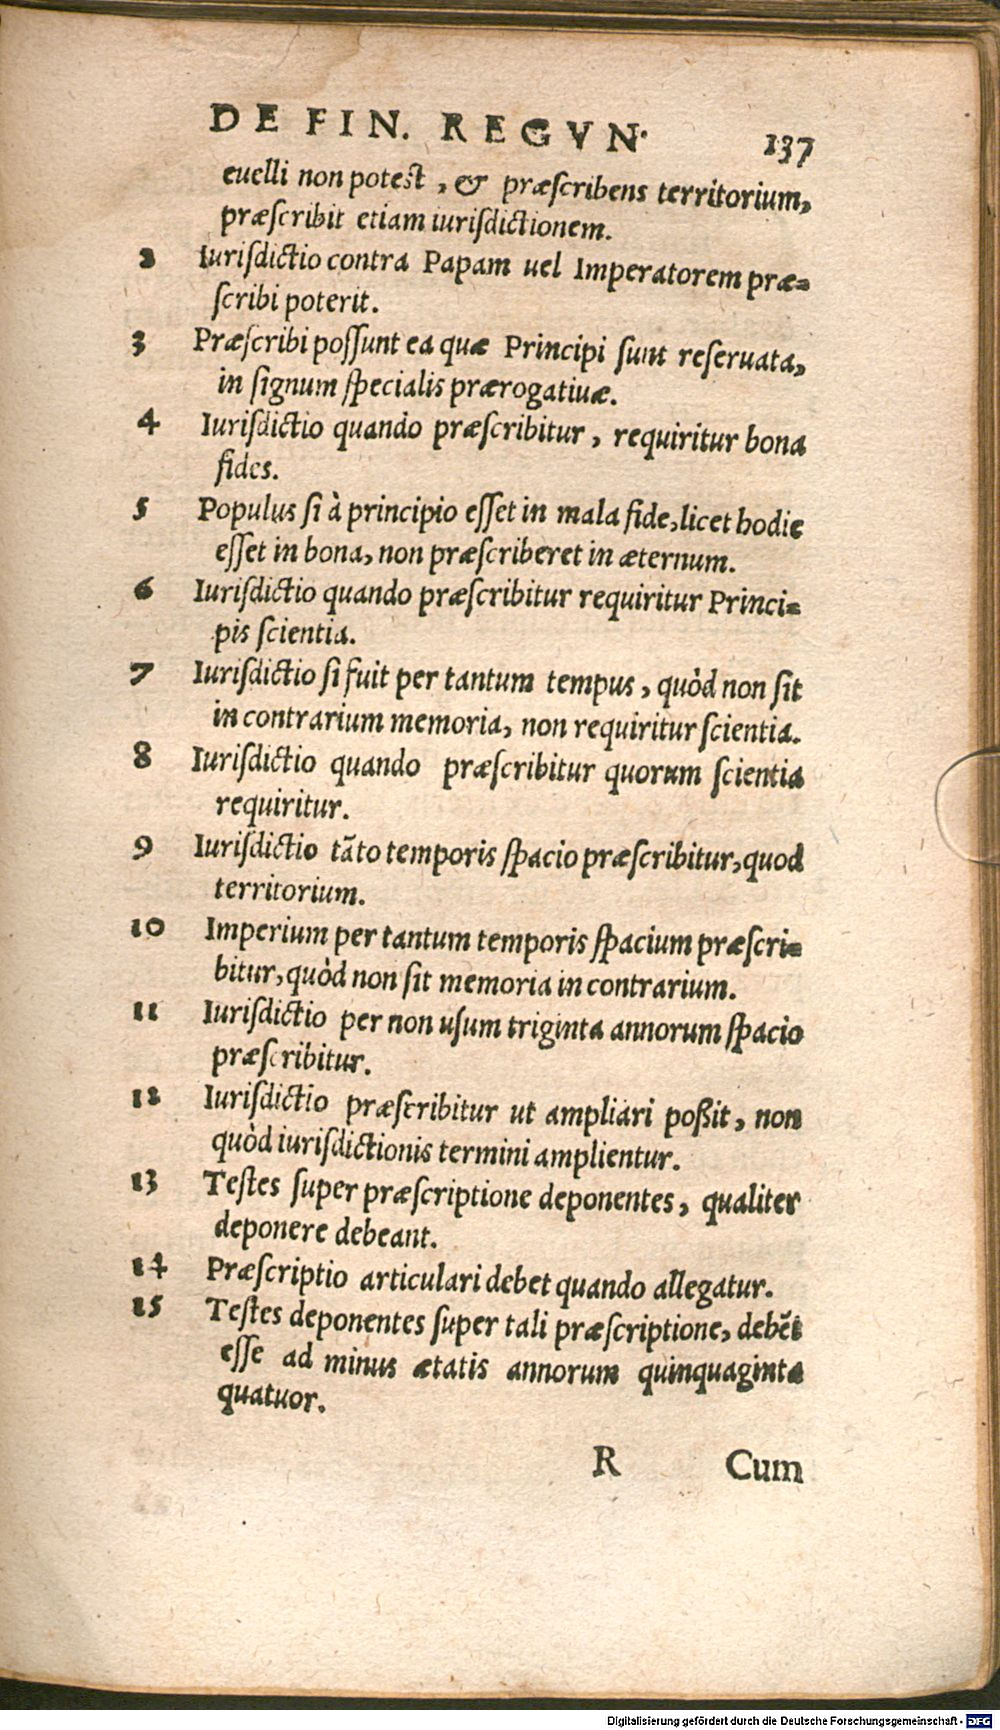 DE FIN. REGVN. 137
euelli non potest, & præſcribens territorium,
præſcribit etiam iuriſdictionem.
2 Iuriſdictio contra Papam uel Imperatorem præ=
ſcribi poterit.
3 Præſcribi poſſunt ea quæ Principi ſunt reſeruata,
in ſignum ſpecialis prærogatiuæ.
4 Iuriſdictio quando præſcribitur, requiritur bona
fides.
5 Populus ſi à principio eſſet in mala fide, licet hodie
eſſet in bona, non præſcriberet in æternum.
6 Iuriſdictio quando præſcribitur requiritur Princi=
pis ſcientia.
7 Iuriſdictio ſi fuit per tantum tempus, quòd non ſit
in contrarium memoria, non requiritur ſcientia.
8 Iuriſdictio quando præſcribitur quorum ſcientia
requiritur.
9 Iuriſdictio tãto temporis ſpacio præſcribitur, quod
territorium.
10 Imperium per tantum temporis ſpacium præſcri=
bitur, quòd non ſit memoria in contrarium.
11 Iuriſdictio per non uſum triginta annorum ſpacio
præſcribitur.
12 Iuriſdictio præſcribitur ut ampliari poßit, non
quòd iuriſdictionis termini amplientur.
13 Teſtes ſuper præſcriptione deponentes, qualiter
deponere debeant.
14 Præſcriptio articulari debet quando allegatur.
15 Teſtes deponentes ſuper tali præſcriptione, debẽt
eſſe ad minus ætatis annorum quinquaginta
quatuor.
R Cum
Digitalisierung gefördert durch die Deutsche Forschungsgemeinschaft - DFG